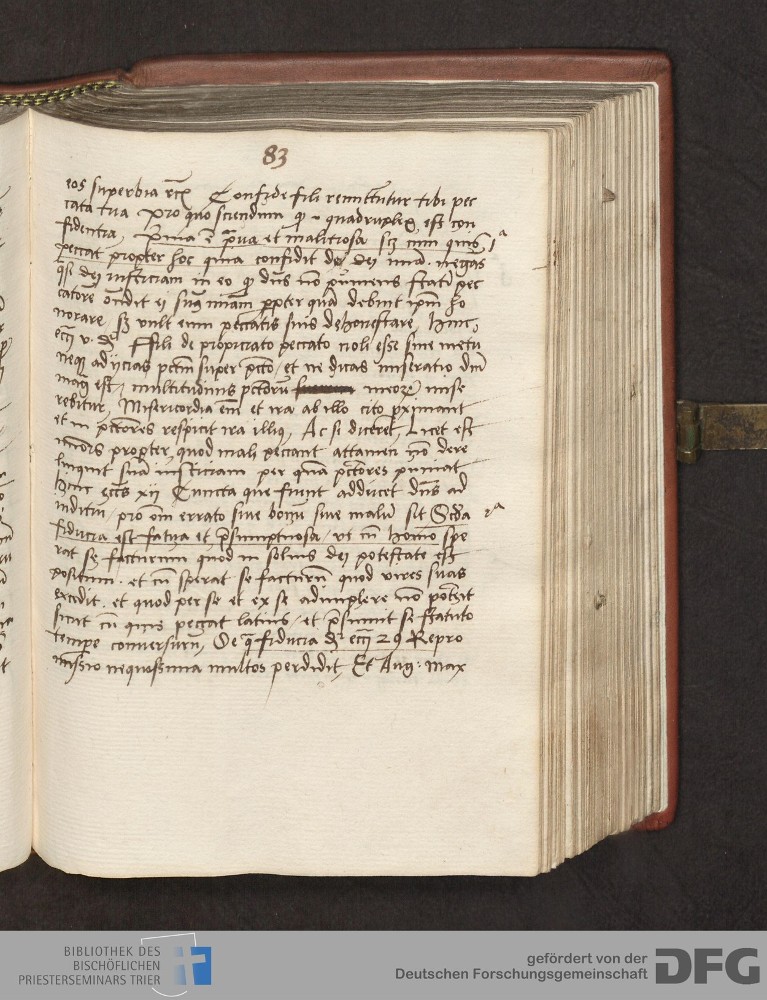 83
eos superbia etc Confide fili remittuntur tibi pec
cata tua pro quo sciendum quod quadruplex est con
fidentia, Prima est praua et malitiosa scilicet cum quis 1a
peccat propter hoc quia confidit de dei mia. negans
dei iusticiam in eo quod dns non puniens statim pec
catorē ondit ei suam miam propter quam debuit ipm ho
norare, sed vult eum peccatis suis dehonestare, hinc
eccī v. dr Fili de propiciato peccato noli esse sine metu
neque adijcias pctm super pctō, et ne dicas miseratio dnī
magna est, multitudinis pctorū meorum mise
rebitur, Misericordia enī et ira ab illo cito proximant
et in pctores respicit ira illius, Ac si diceret, Licet est
miors propter quod mali peccant attamen non dere
linquit suā iusticiam per quā pctores puniat
hinc eccs xij Cuncta que fiunt adducet dns ad
iuditiū, pro omī errato siue bonū siue malū sit Scda 2a
fiducia est fatua et presumptuosa, vt cū homo spe
rat se facturum quod in solius dei potestate est
positum. et cū sperat se facturū quod vires suas
excedit. et quod per se et ex se adimplere non potest
sicut cū quis peccat latius, et presumit se statuto
tempore conuersurū, De qua fiducia dr eccī 29 Repro
missio nequissima multos perdidit, Et Aug: max
BIBLIOTHEK DES
BISCHÖFLICHEN
PRIESTERSEMINARS TRIER
gefördert von der
Deutschen Forschungsgemeinschaft
DFG